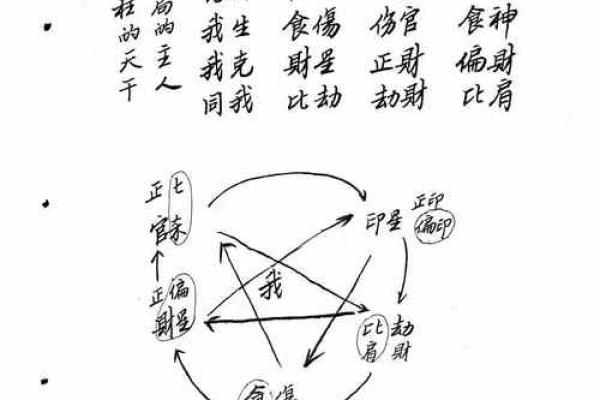 柱的天干
局的主人
我生 食傷 伤官 食神
我克 財星 正財 偏財
同我 比劫 劫財 比肩
正官
七杀
印星
正印
偏印
正偏
財星
我
比肩
劫財
食傷